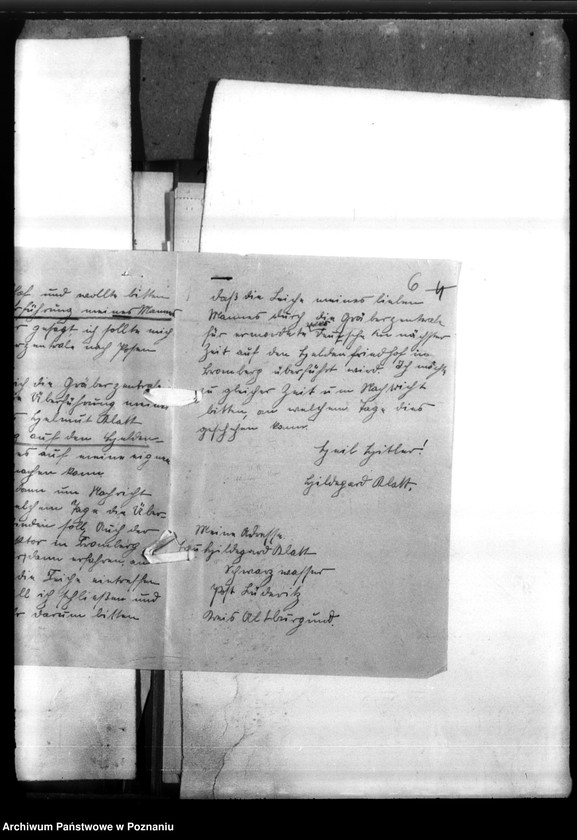 hof und wollte bitten
führung meines Mannes
gesagt ich sollte mich
zentrale nach Posen
ich die Gräberzentrale
Überführung meines
Helmut Klatt
auf den Helden-
es auf meine eigene
machen kann.
dann um Nachricht
welchem Tage die Über-
finden soll. Auch der
in Bromberg
dann erfahren, an
die Leiche eintreffen
ich schließen und
darum bitten
6 4
daß die Leiche meines lieben
Mannes durch die Gräberzentrale
für ermordete Deutsche in nächster
Zeit auf den Heldenfriedhof in
Bromberg überführt wird. Ich möchte
zu gleicher Zeit um Nachricht
bitten, an welchem Tage dies
geschehen kann.
Heil Hitler!
Hildegard Klatt.
Meine Adresse.
Frau Hildegard Klatt
Schwarzwasser
Post Lüderitz
Kreis Altburgund.
Archiwum Państwowe w Poznaniu